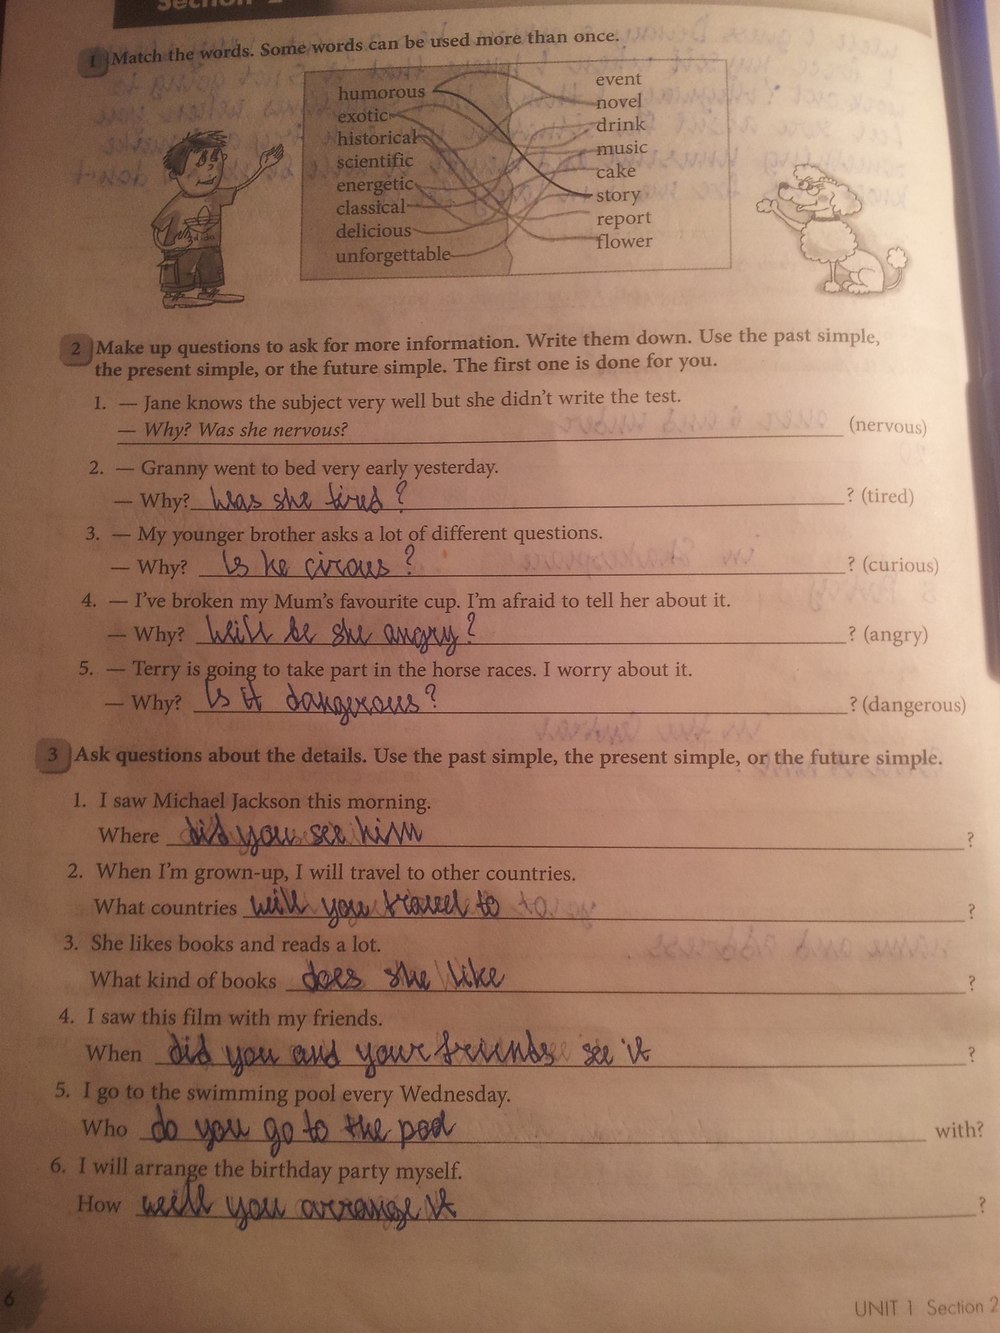 1 Match the words. Some words can be used more than once.
humorous
exotic
historical
scientific
energetic
classical
delicious
unforgettable
event
novel
drink
music
cake
story
report
flower
2 Make up questions to ask for more information. Write them down. Use the past simple,
the present simple, or the future simple. The first one is done for you.
1. — Jane knows the subject very well but she didn't write the test.
— Why? Was she nervous? (nervous)
2. — Granny went to bed very early yesterday.
— Why? Was she tired? ? (tired)
3. — My younger brother asks a lot of different questions.
— Why? Is he cirous? ? (curious)
4. — I've broken my Mum's favourite cup. I'm afraid to tell her about it.
— Why? Will be she angry? ? (angry)
5. — Terry is going to take part in the horse races. I worry about it.
— Why? Is it dangerous? ? (dangerous)
3 Ask questions about the details. Use the past simple, the present simple, or the future simple.
1. I saw Michael Jackson this morning.
Where did you see him ?
2. When I'm grown-up, I will travel to other countries.
What countries will you travel to ?
3. She likes books and reads a lot.
What kind of books does she like ?
4. I saw this film with my friends.
When did you and your friends see it ?
5. I go to the swimming pool every Wednesday.
Who do you go to the pool with?
6. I will arrange the birthday party myself.
How will you arrange it ?
6
UNIT 1 Section 2